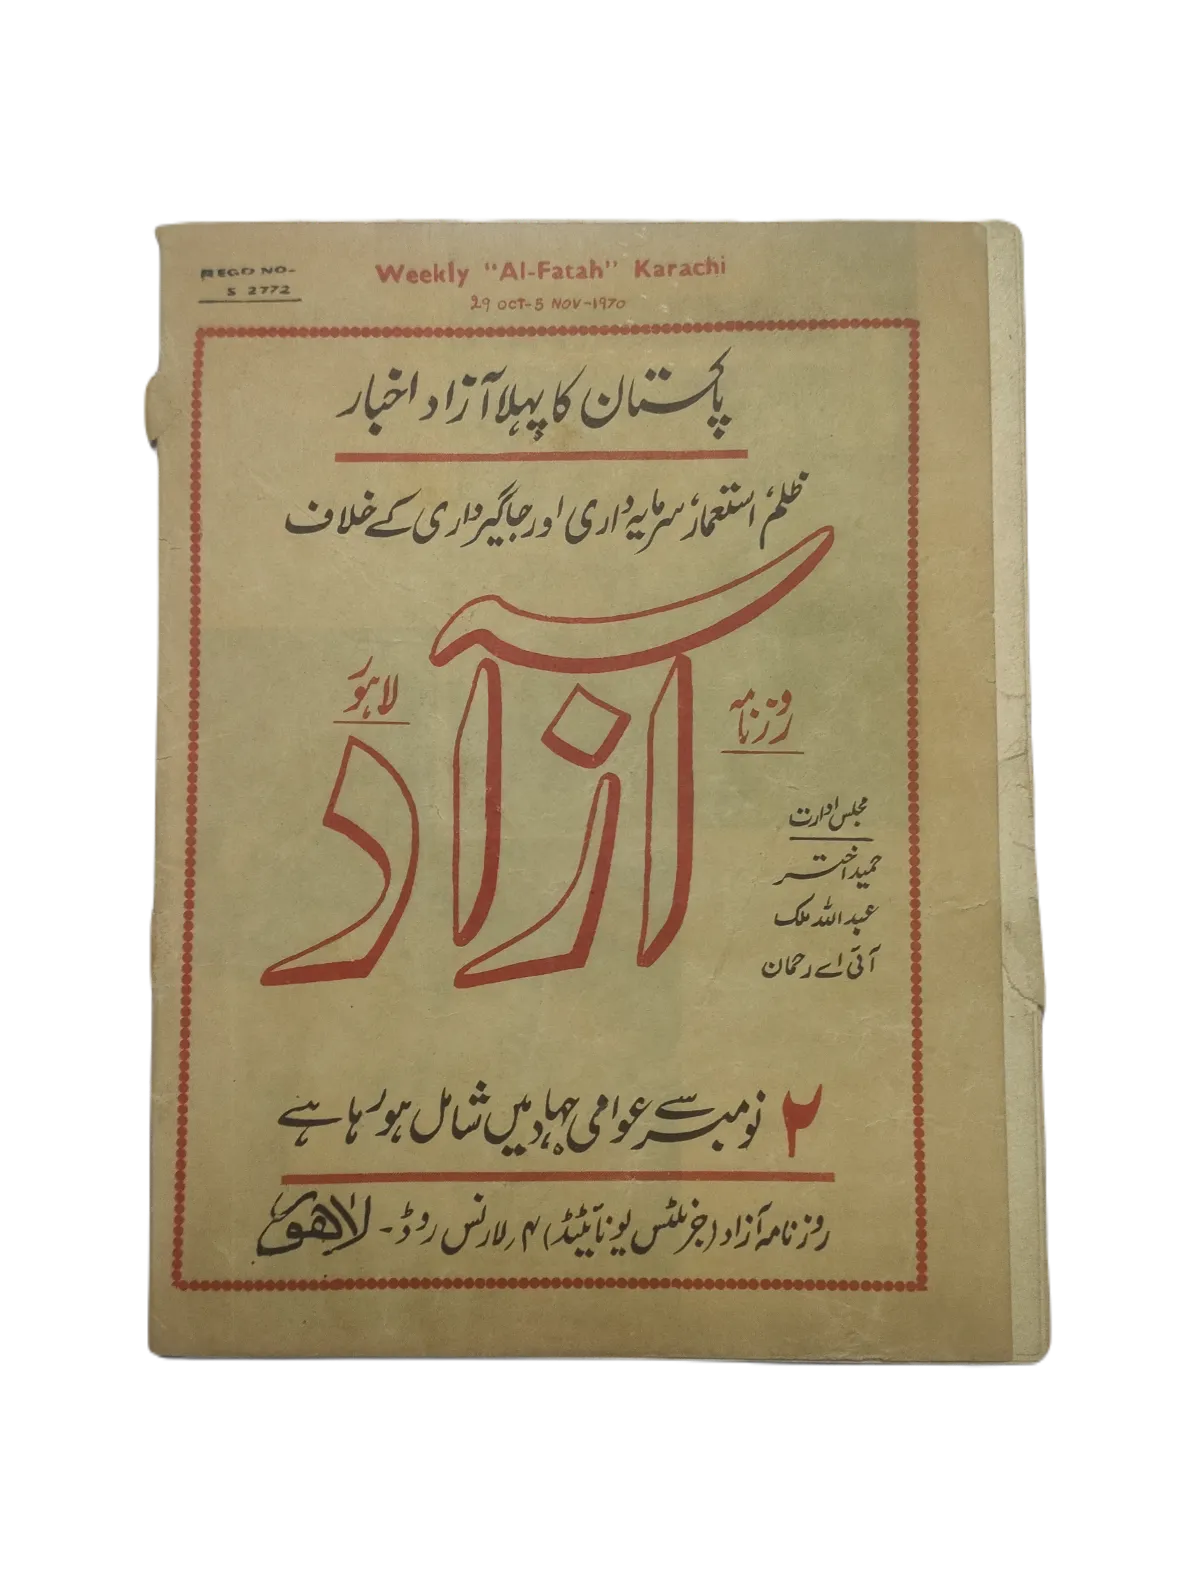 REGD NO-
S 2772
Weekly "Al-Fatah" Karachi
29 OCT-5 NOV-1970
پاکستان کا پہلا آزاد اخبار
ظلم، استعمار، سرمایہ داری اور جاگیرداری کے خلاف
روزنامہ
آزاد
لاہور
مجلس ادارت
حمید اختر
عبداللہ ملک
آئی اے رحمان
۲ نومبر سے عوامی جہاد میں شامل ہو رہا ہے
روزنامہ آزاد (جرنلٹس یونائیٹڈ) ۴، لارنس روڈ - لاھور